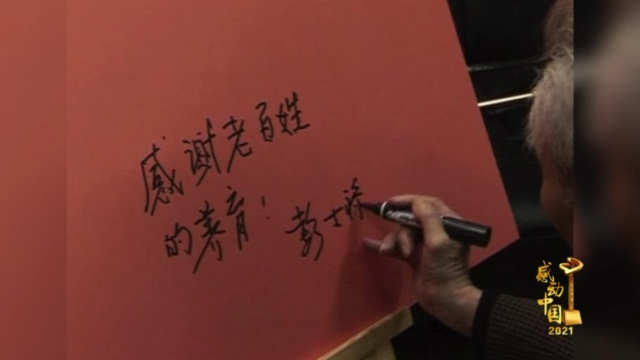 感谢老百姓
的养育！ 彭士禄
感动
中国
2021